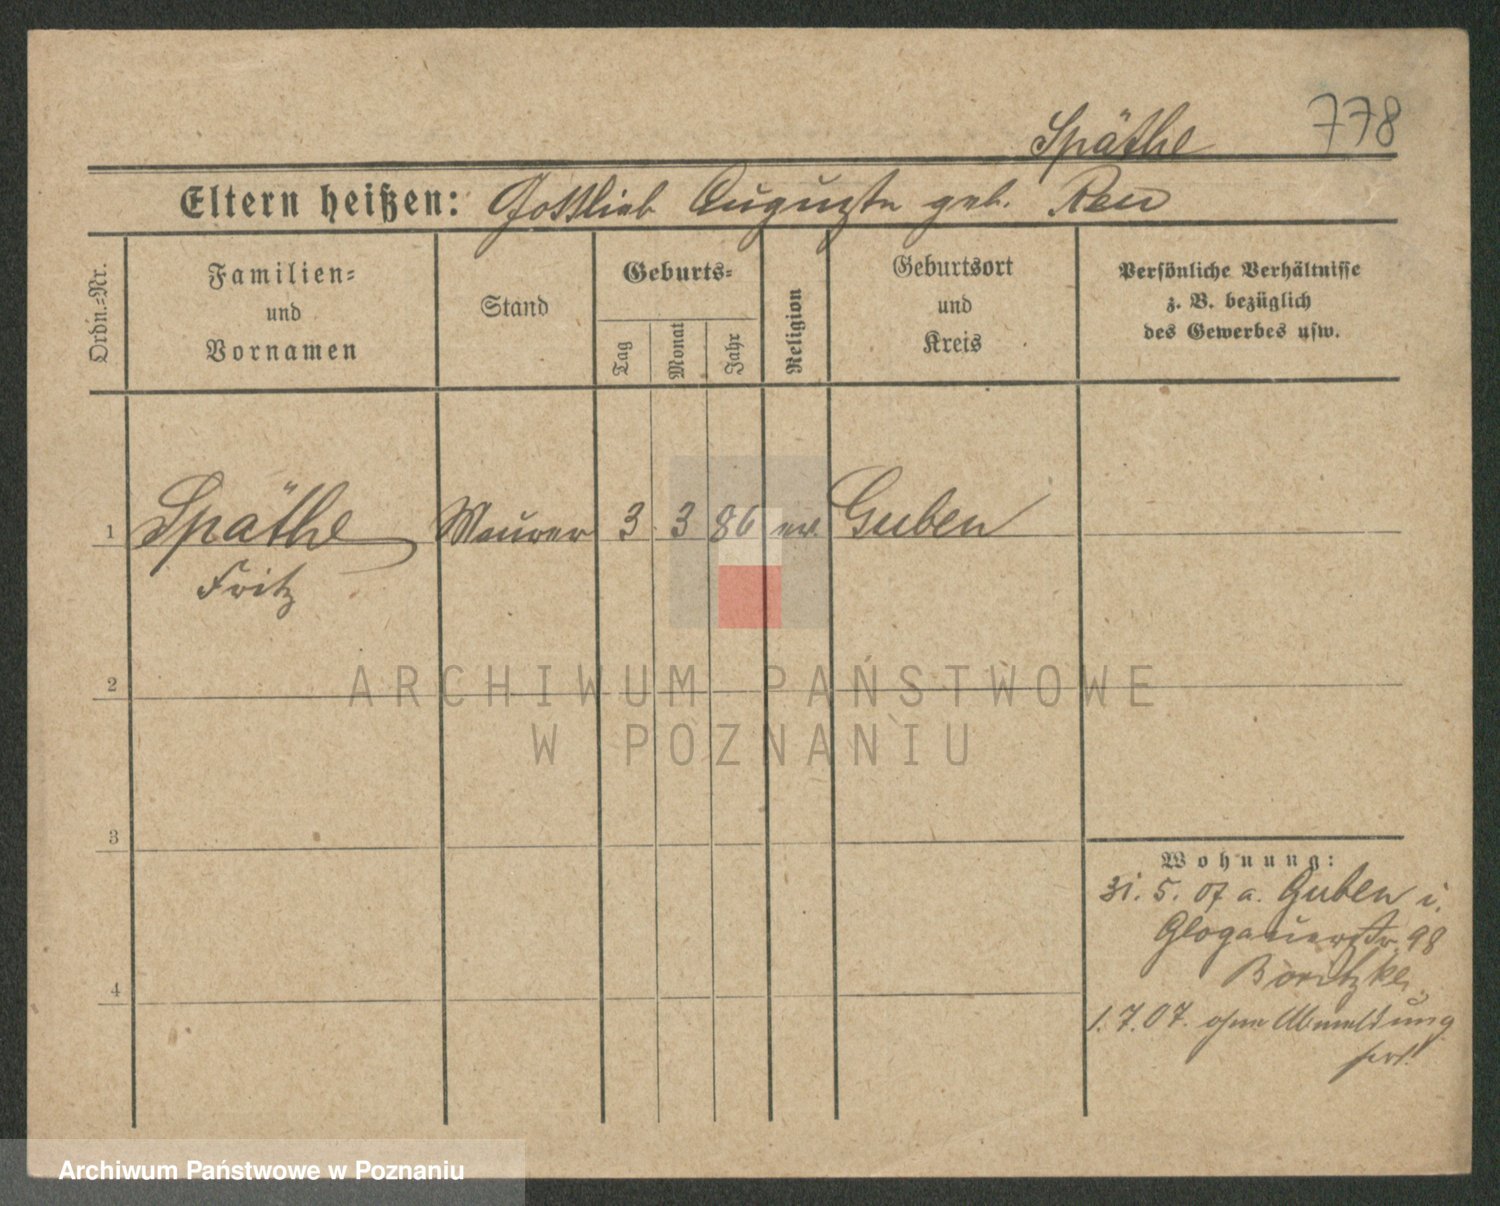 778
Späthe
Eltern heißen: Gottlieb Auguste geb. Reu
Ordn.-Nr.
Familien-
und
Vornamen
Stand
Geburts-
Tag
Monat
Jahr
Religion
Geburtsort
und
Kreis
Persönliche Verhältnisse
z. B. bezüglich
des Gewerbes usw.
1 Späthe Maurer 3 3 86 ev. Guben
Fritz
2
3
4
Wohnung:
31. 5. 07 a. Guben i.
Glogauerstr. 98
1. 7. 07. ohne Abmeldung
fort.
ARCHIWUM PAŃSTWOWE
W POZNANIU
Archiwum Państwowe w Poznaniu